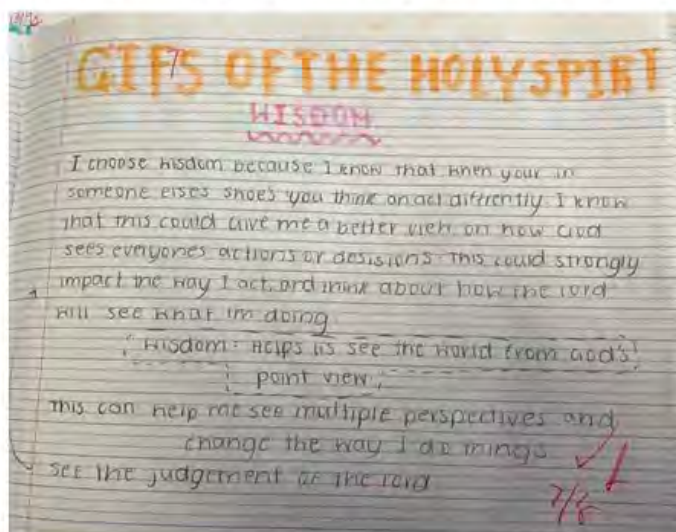 GIFTS OF THE HOLY SPIRT
WISDOM
I choose wisdom because I know that when your in
someone elses shoes you think an act diffrently. I know
that this could give me a better view on how God
sees everyones actions or desisions. This could strongly
impact the way I act, and think about how the lord
will see what im doing.
Wisdom: Helps us see the world from God's
point view,
This can help me see multiple perspectives and
change the way I do things
see the judgement of the lord
7/8